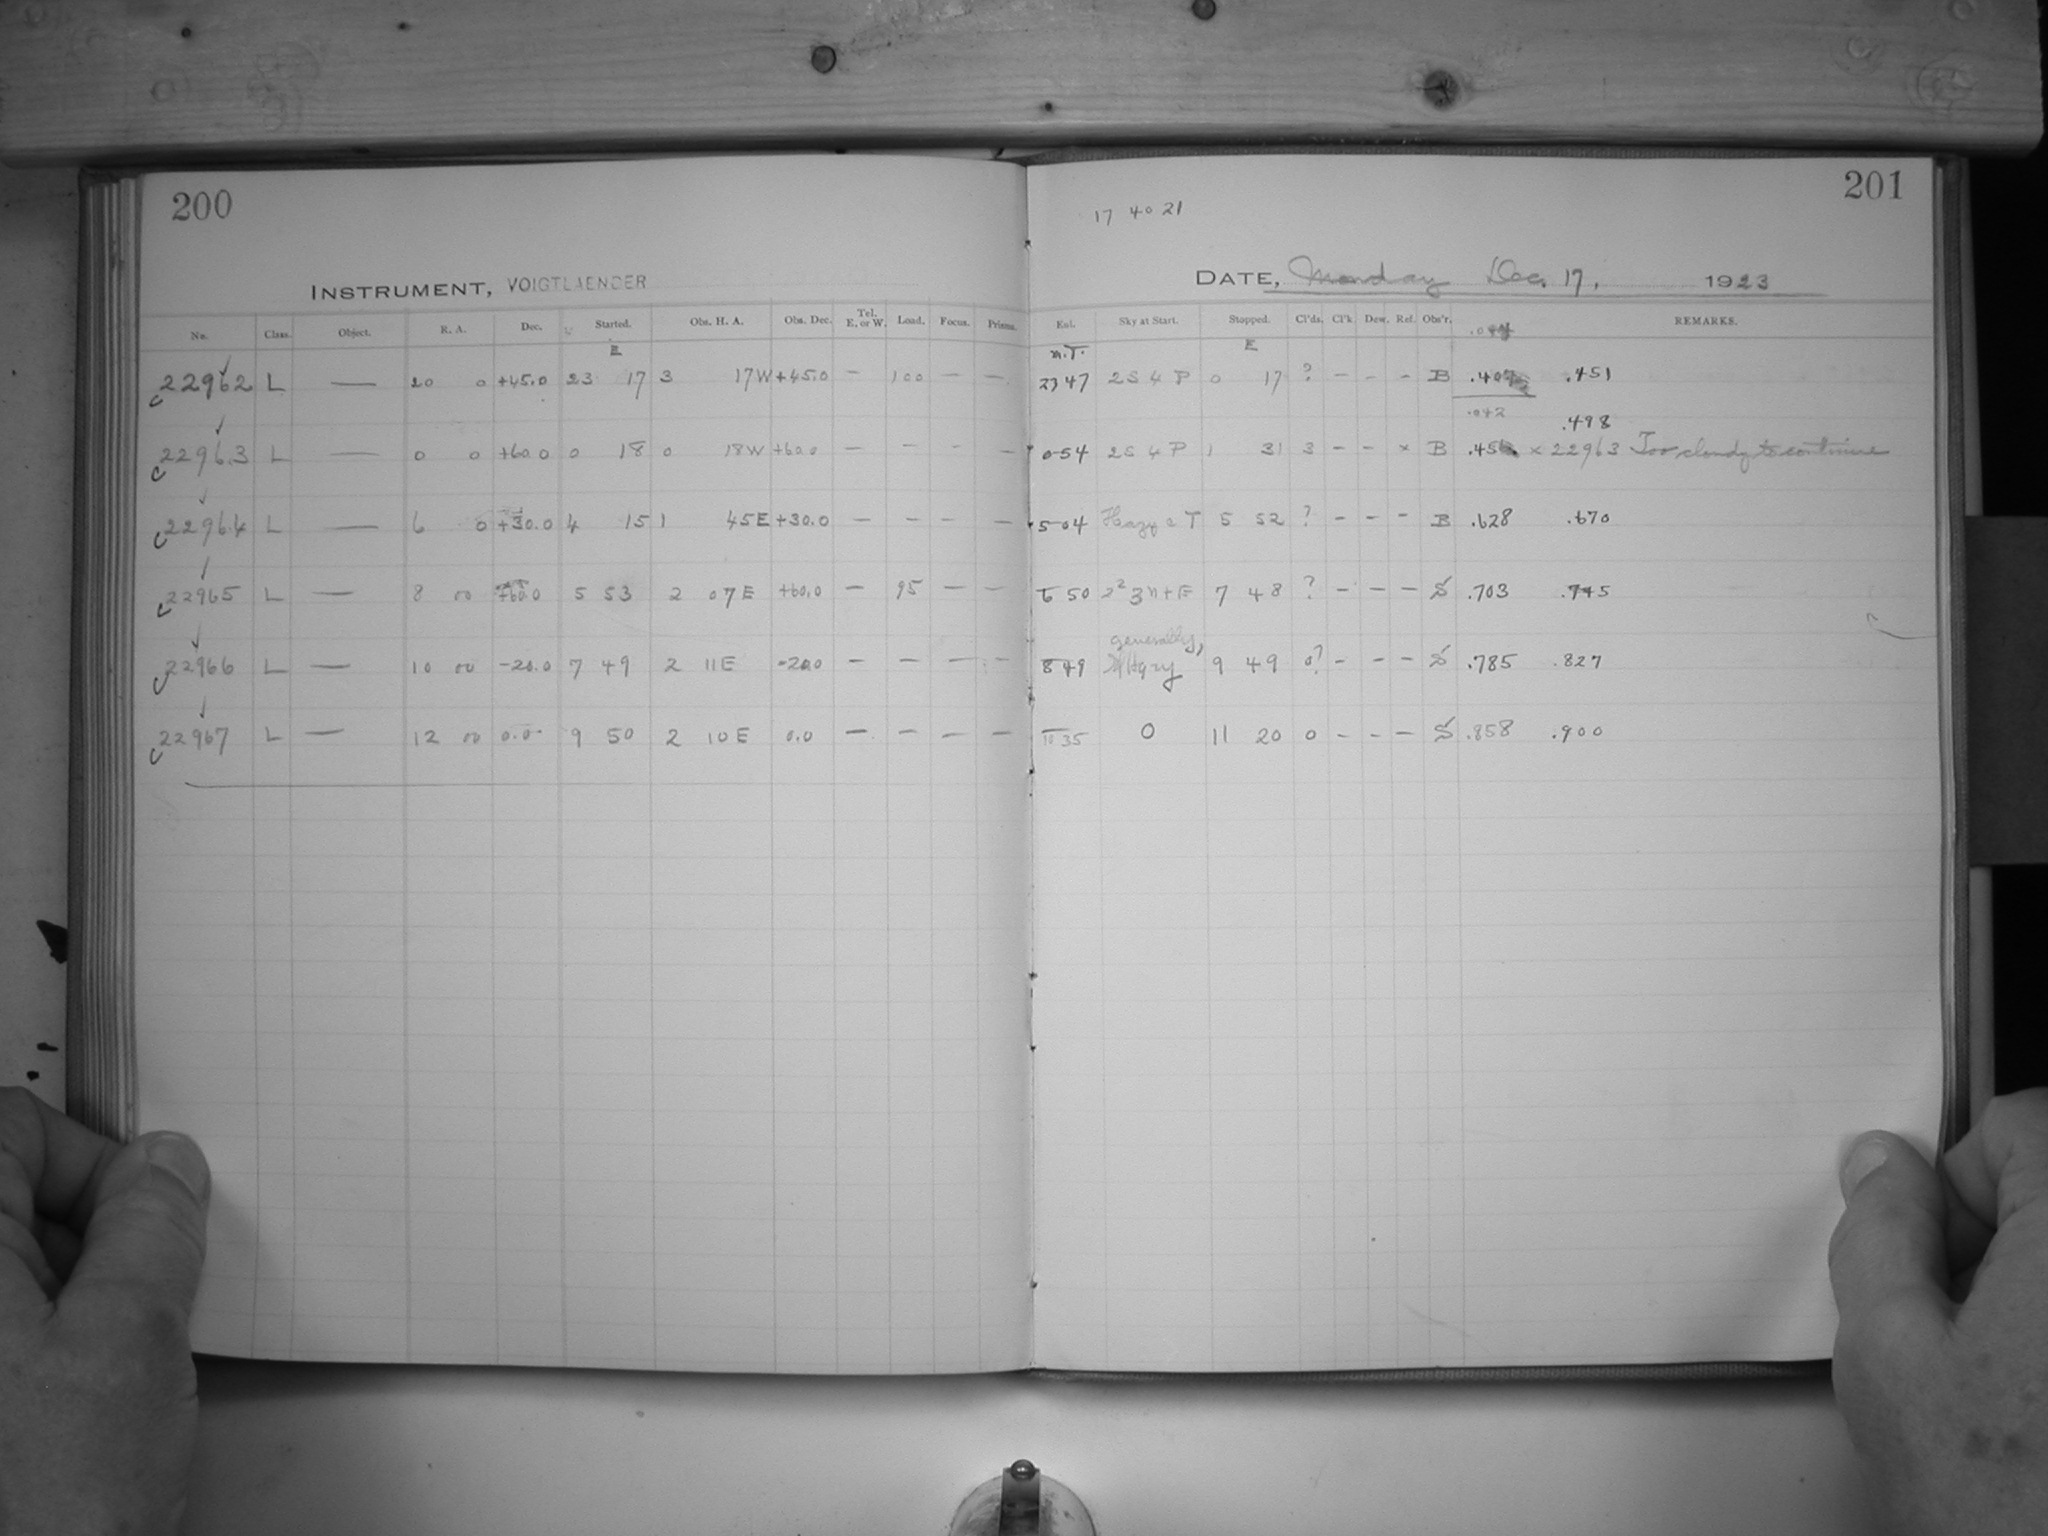 200
INSTRUMENT, VOIGTLAENDER
No. Class. Object. R. A. Dec. Started. Obs. H. A. Obs. Dec. Tel. E. or W. Load. Focus. Prisms.
E
22962 L — 20 0 +45.0 23 17 3 17W +45.0 — 100 — —
22963 L — 0 0 +60.0 0 18 0 18W +60.0 — — — —
22964 L — 6 0 +30.0 4 15 1 45E +30.0 — — — —
22965 L — 8 00 +60.0 5 53 2 07E +60.0 — 95 — —
22966 L — 10 00 -20.0 7 49 2 11E -20.0 — — — —
22967 L — 12 00 0.0 9 50 2 10E 0.0 — — — —
201
17 40 21
DATE, Monday Dec. 17, 1923
Ent. Sky at Start. Stopped. Cl'ds. Cl'k. Dew. Ref. Obs'r. REMARKS.
M.T. E
23 47 2S 4 P 0 17 ? — - - B .451
.042 .498
0 54 2S 4 P 1 31 3 — — x B x 22963 Too cloudy to continue
5 04 Hazy 2 T 5 52 ? — - - B .628 .670
6 50 7 48 ? — — — S .703 .745
generally,
8 49 9 49 0? — — — S .785 .827
10 35 0 11 20 0 - - — S .858 .900